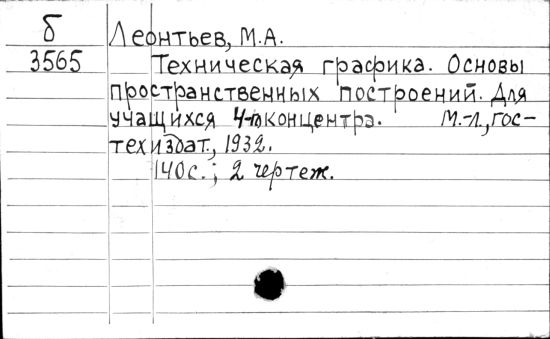 б
3565
Леонтьев, М.А.
Техническая графика. Основы
пространственных построений. Для
учащихся 4-го концентра. М.-Л., Гос-
техиздат., 1932.
140с.; 2 чертеж.